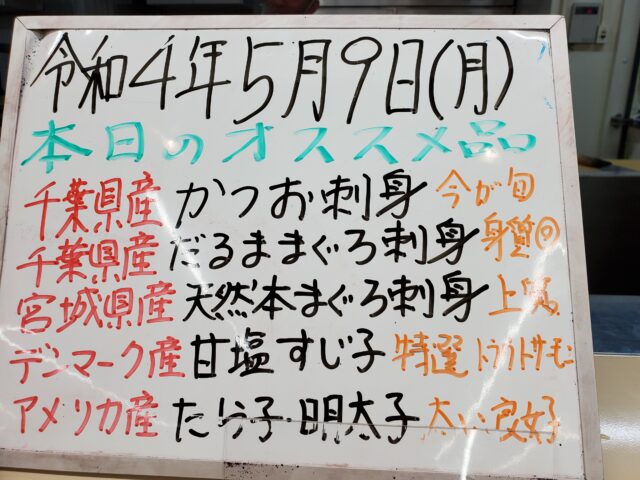 令和4年5月9日(月)
本日のオススメ品
千葉県産 かつお刺身 今が旬
千葉県産 だるままぐろ刺身 身質◎
宮城県産 天然本まぐろ刺身 上質
デンマーク産 甘塩すじ子 特選 トラウトサーモン
アメリカ産 たら子・明太子 太い良好